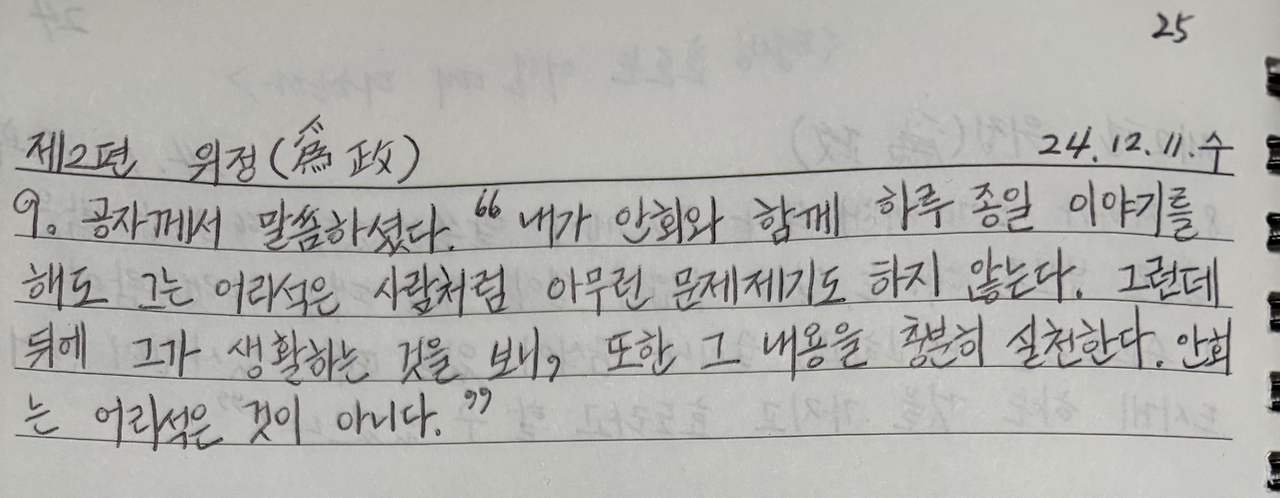 25
제2편 위정(爲政) 24.12.11.수
9. 공자께서 말씀하셨다. "내가 안회와 함께 하루 종일 이야기를
해도 그는 어리석은 사람처럼 아무런 문제제기도 하지 않는다. 그런데
뒤에 그가 생활하는 것을 보니, 또한 그 내용을 충분히 실천한다. 안회
는 어리석은 것이 아니다."